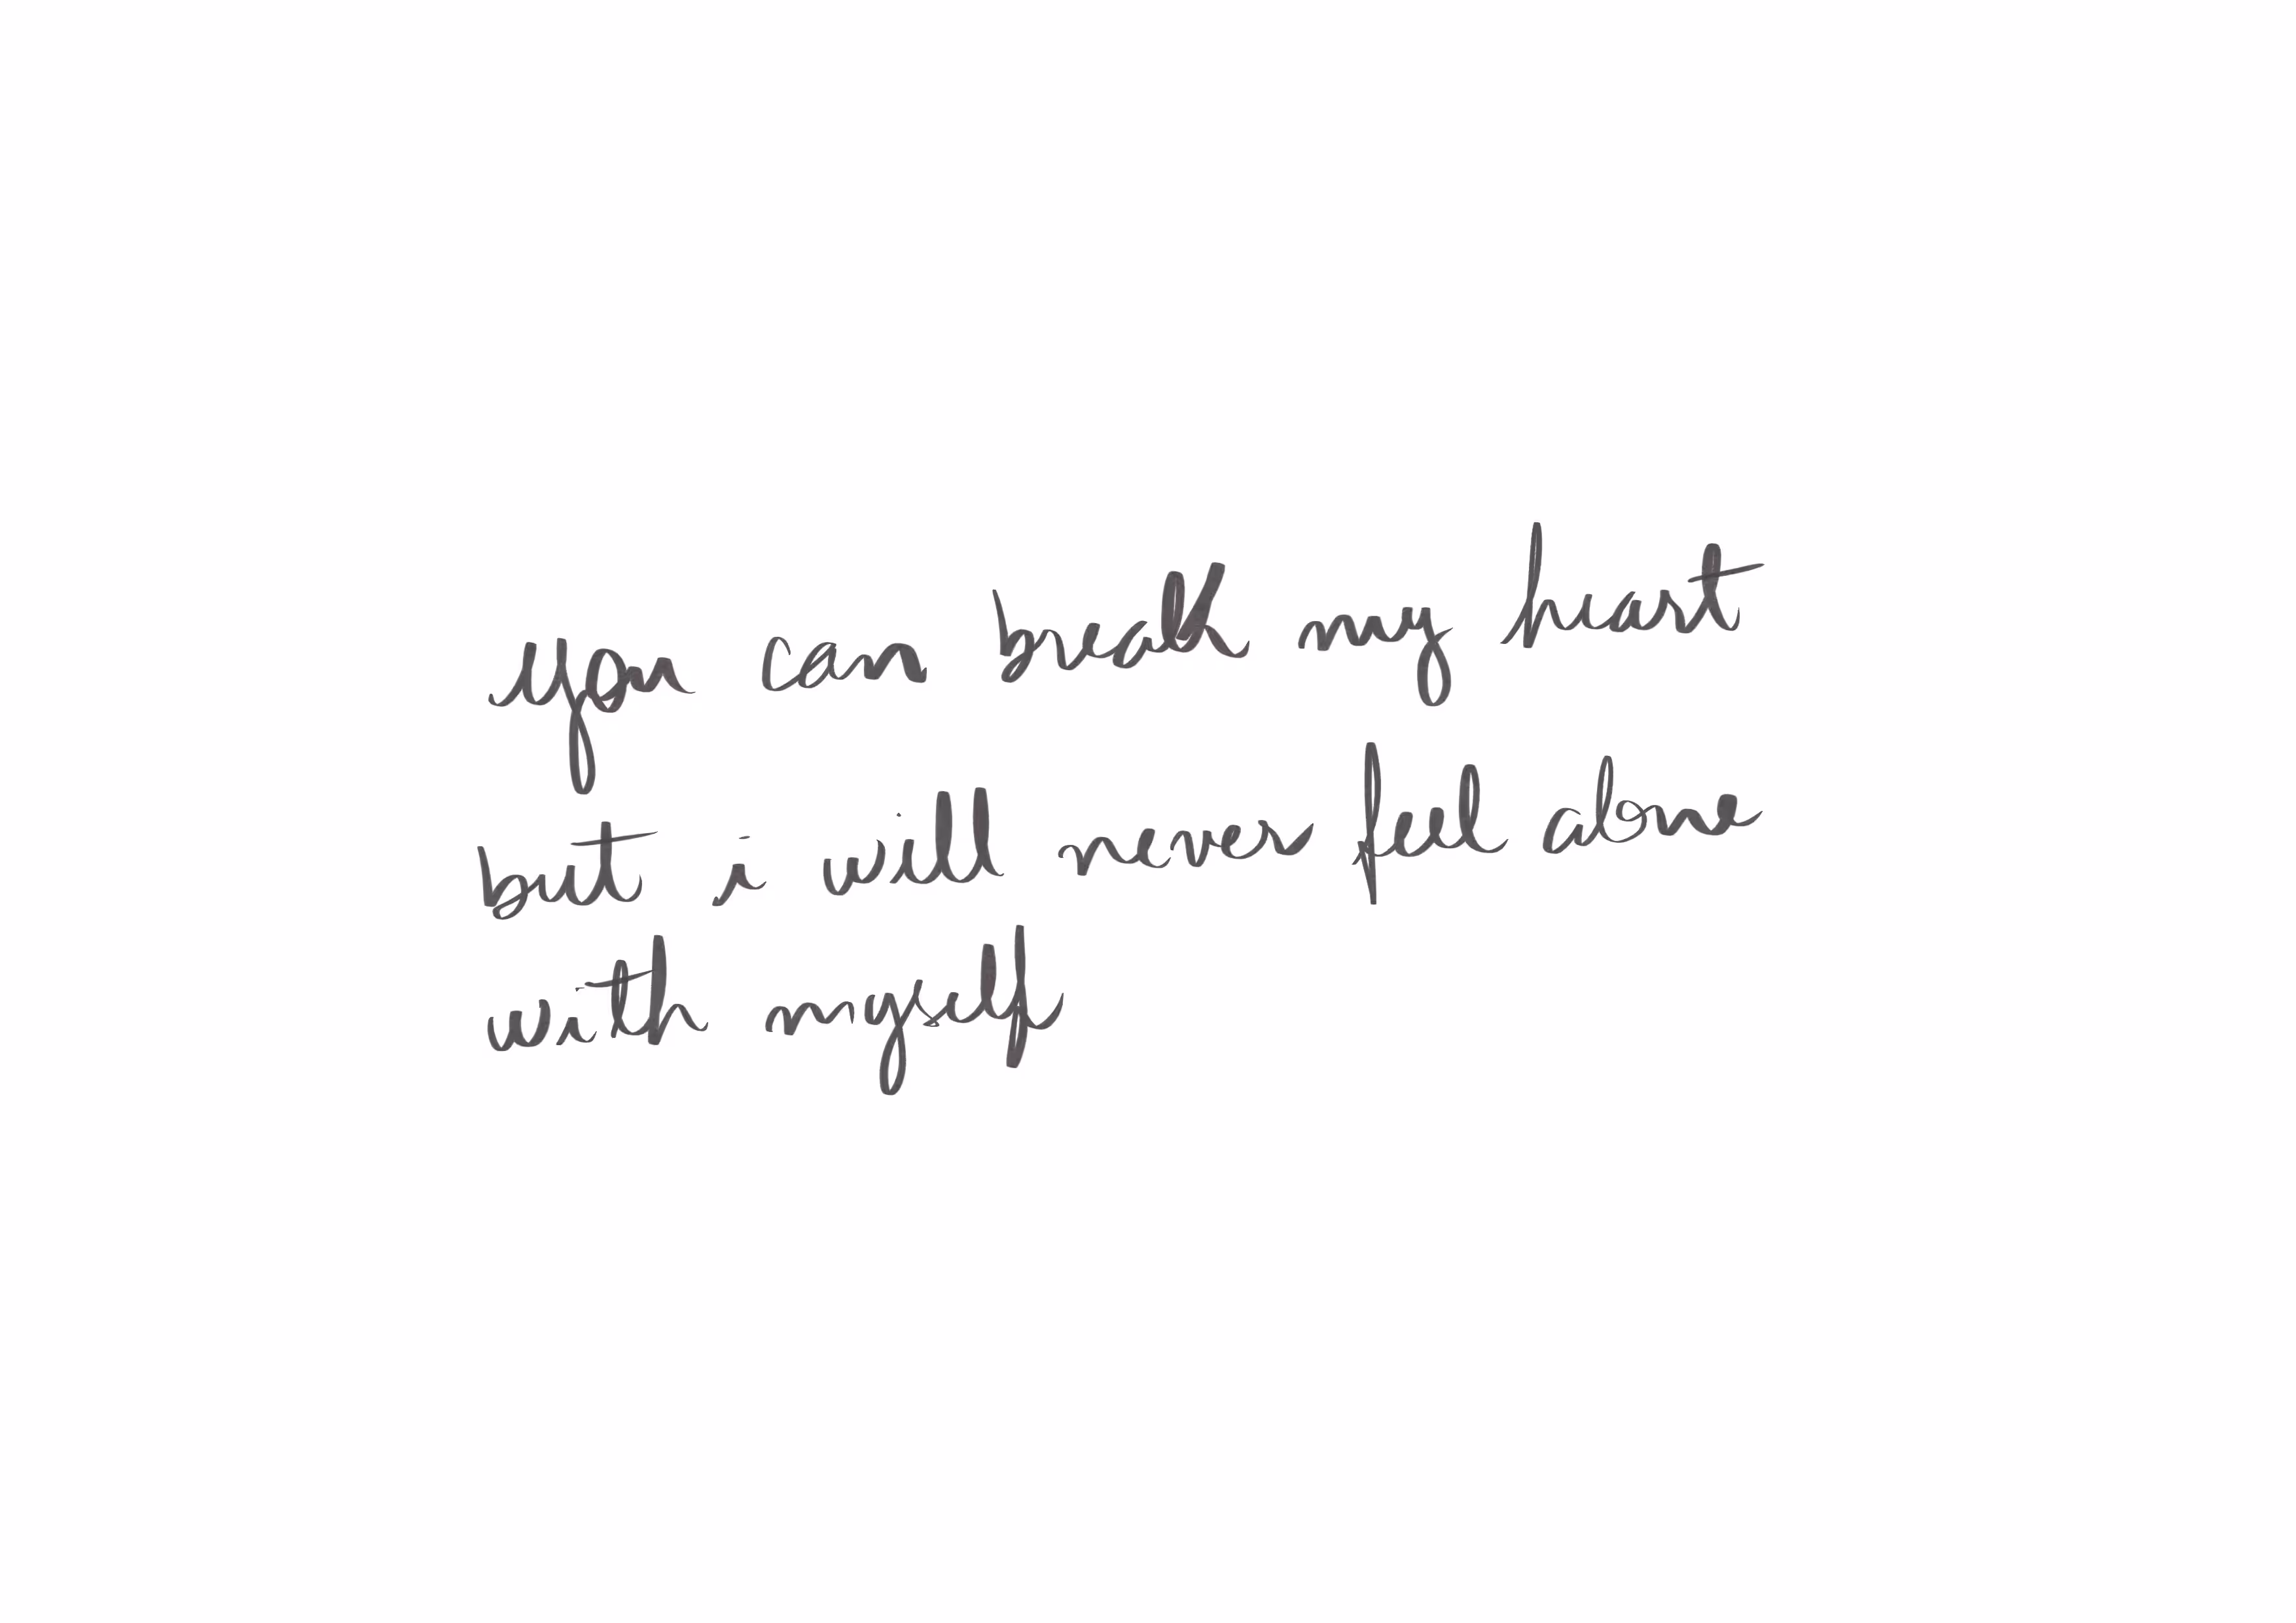 you can break my heart
but i will never feel alone
with myself